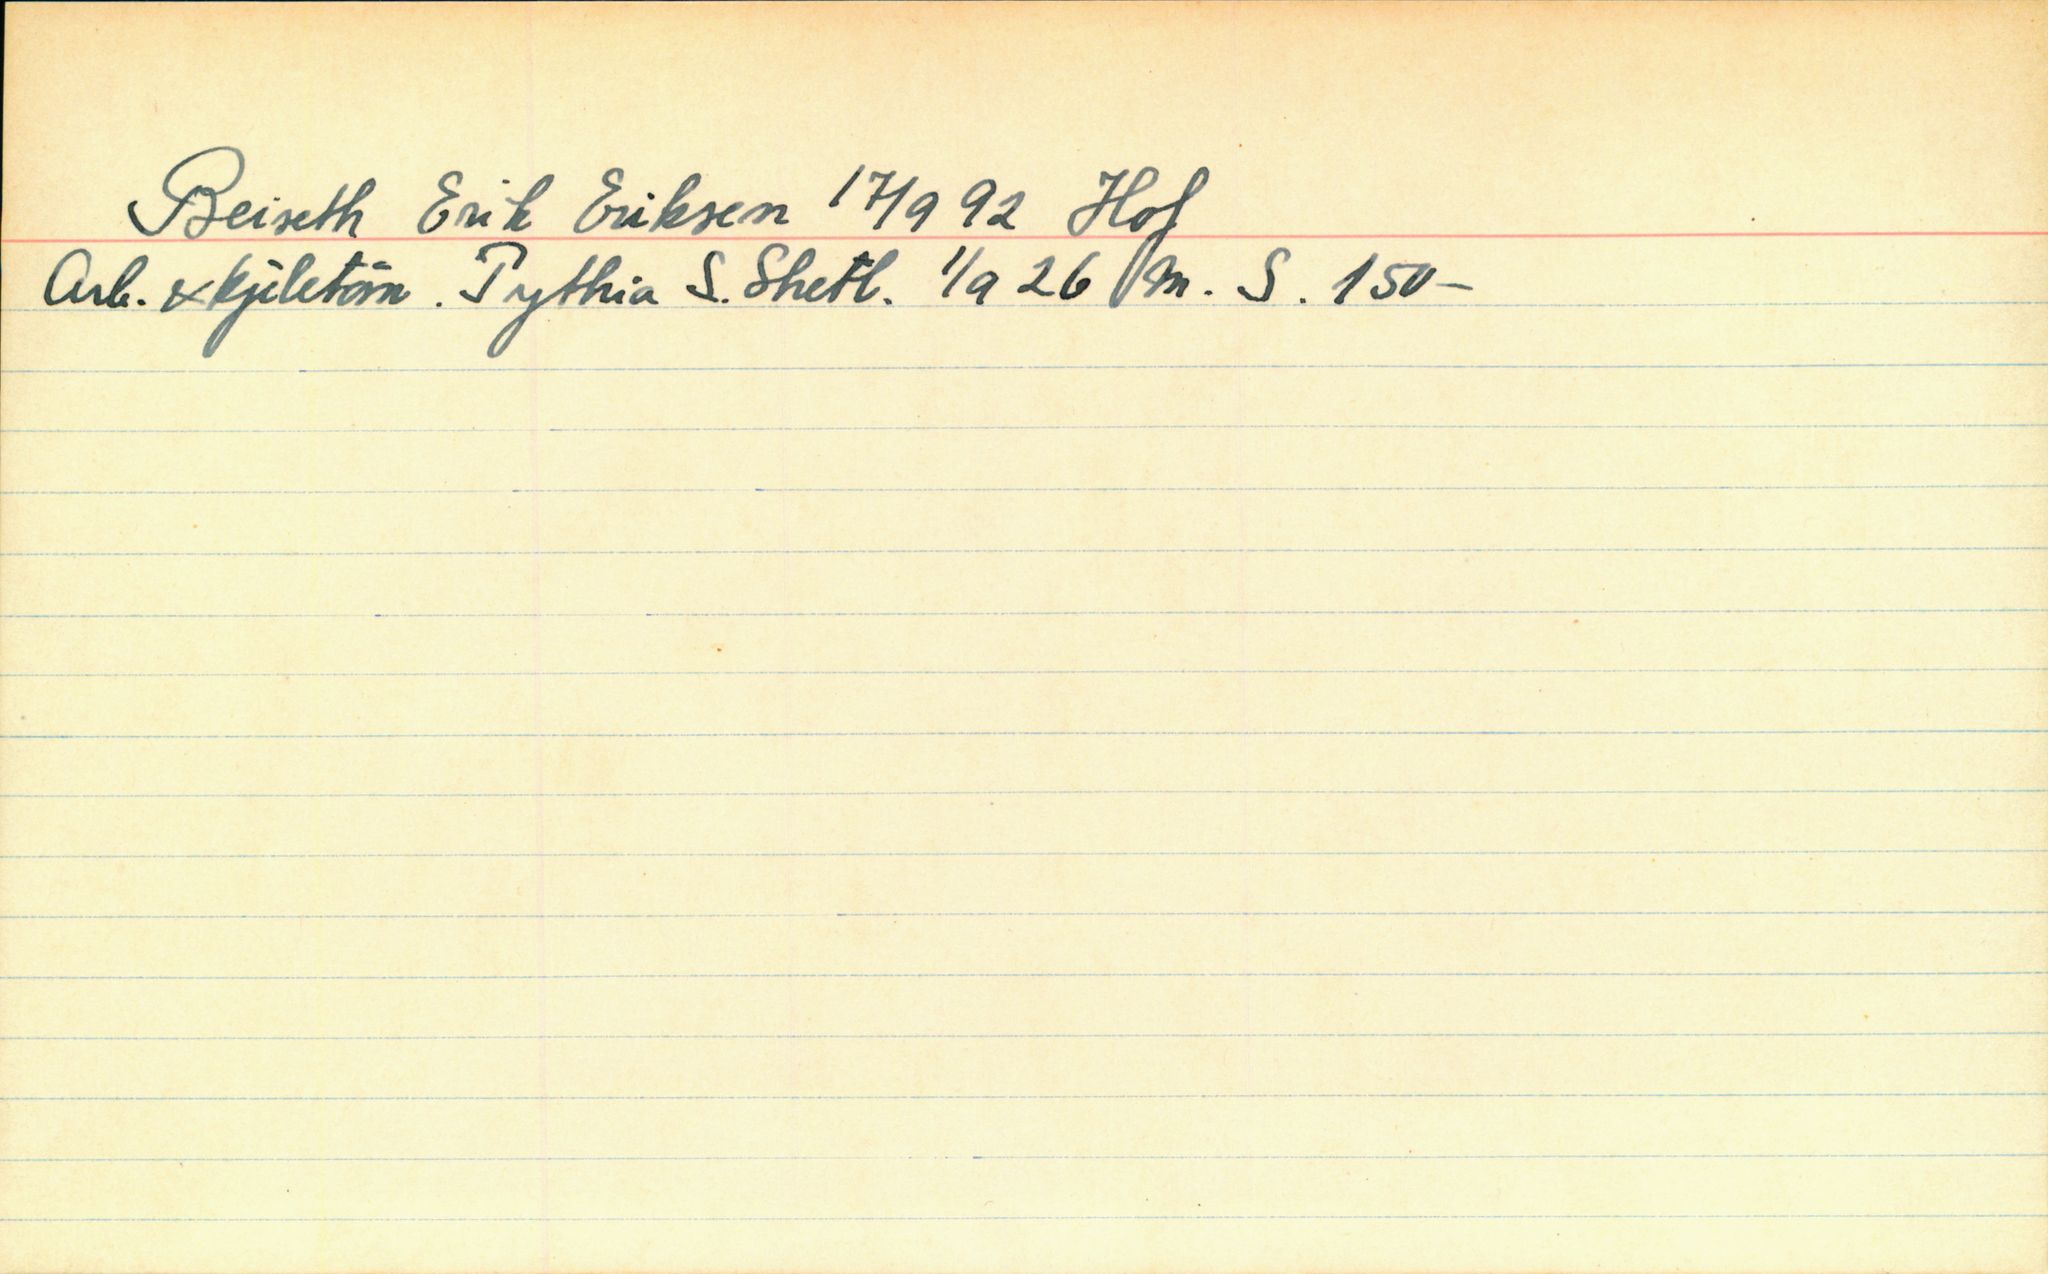 Beiseth Erik Eriksen 17/9 92 Hof
Arb. & kjeletørn. Pythia S. Shetl. 1/9 26 M. S. 150-